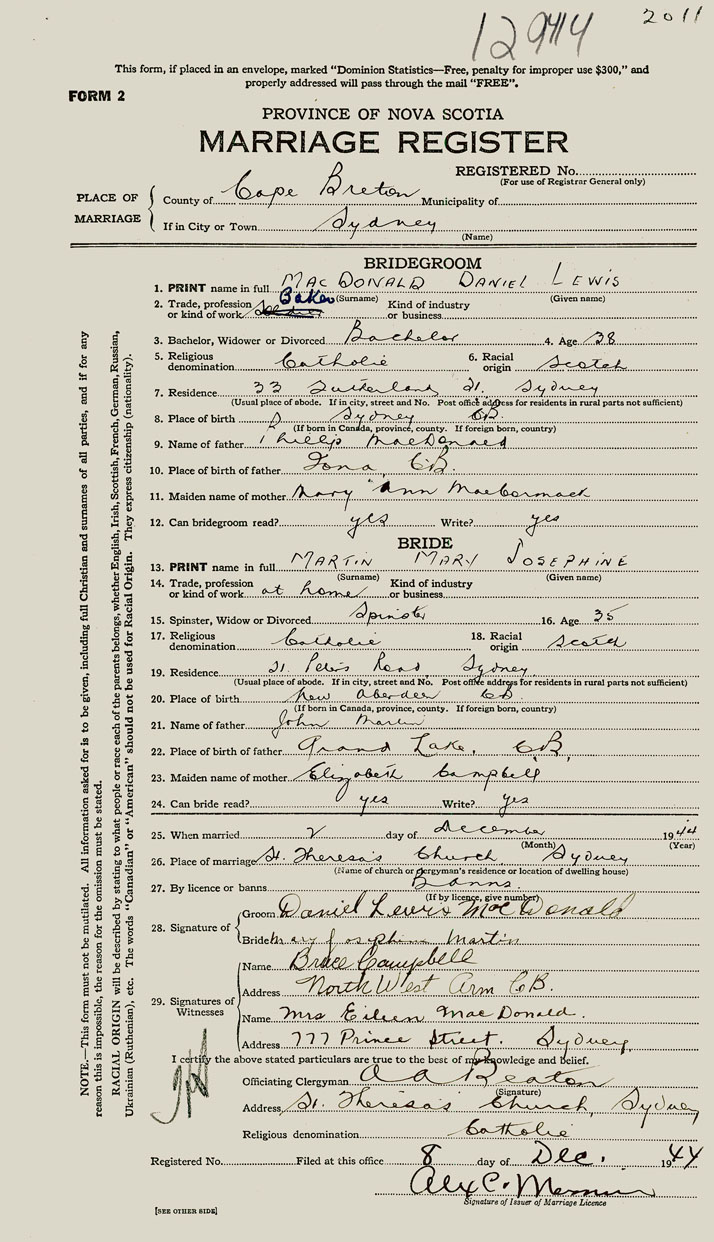 2011
12944
This form, if placed in an envelope, marked “Dominion Statistics—Free, penalty for improper use $300,” and
properly addressed will pass through the mail “FREE”.
FORM 2
PROVINCE OF NOVA SCOTIA
MARRIAGE REGISTER
REGISTERED No.
(For use of Registrar General only)
PLACE OF MARRIAGE
County of Cape Breton Municipality of
If in City or Town Sydney
(Name)
BRIDEGROOM
1. PRINT name in full MACDONALD DANIEL LEWIS
(Surname) (Given name)
2. Trade, profession or kind of work Baker Kind of industry or business
3. Bachelor, Widower or Divorced Bachelor 4. Age 38
5. Religious denomination Catholic 6. Racial origin Scotch
7. Residence 33 Sutherland St. Sydney
(Usual place of abode. If in city, street and No. Post office address for residents in rural parts not sufficient)
8. Place of birth Sydney CB.
(If born in Canada, province, county. If foreign born, country)
9. Name of father Phillip MacDonald
10. Place of birth of father Iona, CB.
11. Maiden name of mother Mary Ann MacCormack
12. Can bridegroom read? yes Write? yes
BRIDE
13. PRINT name in full MARTIN MARY JOSEPHINE
(Surname) (Given name)
14. Trade, profession or kind of work at home Kind of industry or business
15. Spinster, Widow or Divorced Spinster 16. Age 35
17. Religious denomination Catholic 18. Racial origin Scotch
19. Residence St. Peters Road, Sydney
(Usual place of abode. If in city, street and No. Post office address for residents in rural parts not sufficient)
20. Place of birth New Aberdeen CB
(If born in Canada, province, county. If foreign born, country)
21. Name of father John Martin
22. Place of birth of father Grand Lake, CB,
23. Maiden name of mother Elizabeth Campbell
24. Can bride read? yes Write? yes
25. When married 2 day of December 1944
(Month) (Year)
26. Place of marriage St. Theresa's Church, Sydney
(Name of church or clergyman's residence or location of dwelling house)
27. By licence or banns Banns.
(If by licence, give number)
28. Signature of
Groom Daniel Lewis MacDonald
Bride Mary Josephine Martin
29. Signatures of Witnesses
Name Bruce Campbell
Address North West Arm CB.
Name Mrs Eileen MacDonald.
Address 777 Prince Street. Sydney.
I certify the above stated particulars are true to the best of my knowledge and belief.
Officiating Clergyman
(Signature)
Address St. Theresa's Church, Sydney
Religious denomination Catholic
Registered No. Filed at this office 8 day of Dec. 1944
Alex C.
Signature of Issuer of Marriage Licence
[SEE OTHER SIDE]
NOTE.—This form must not be mutilated. All information asked for is to be given, including full Christian and surnames of all parties, and if for any
reason this is impossible, the reason for the omission must be stated.
RACIAL ORIGIN will be described by stating to what people or race each of the parents belongs, whether English, Irish, Scottish, French, German, Russian,
Ukrainian (Ruthenian), etc. The words “Canadian” or “American” should not be used for Racial Origin. They express citizenship (nationality).